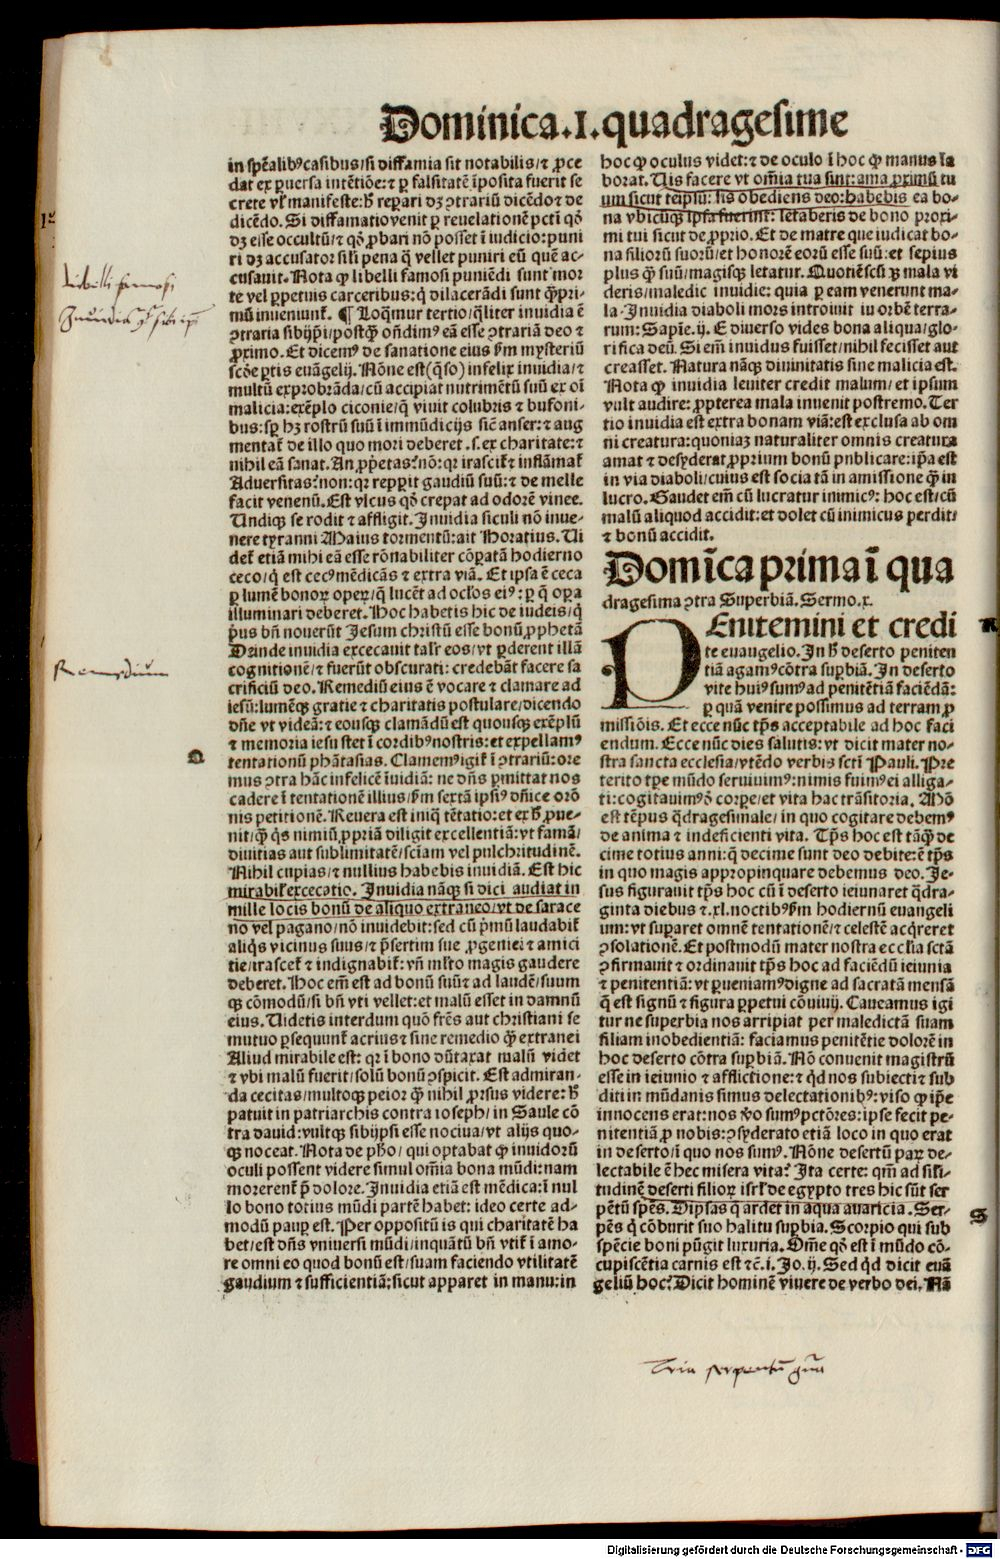 Dominica.I.quadragesime
in spēalibꝰcasibus/si diffamia sit notabilis/⁊ ꝓce
dat ex ꝑuersa intētiōe:⁊ ꝑ falsitatē īposita fuerit se
crete vl' manifeste:hꝫ reꝑari dꝫ ꝯtrariū dicēdo⁊ de
dicēdo. Si diffamatiovenit ꝑ reuelationē pctī qđ
dꝫ esse occultū/⁊ qđ ꝓbari nō posset ī iudicio:puni
ri dꝫ accusator sili pena q̄ vellet puniri eū quē ac-
cusauit. Nota ꝙ libelli famosi puniēdi sunt mor
te vel ꝑpetuis carceribus:q̇ dilacerādi sunt q̄ꝫpri-
mū inueniunt̄. ¶ Loq̄mur tertio/q̄liter inuidia ē
ꝯtraria sibijpi/postq̄ꝫ oñdimꝰ eā esse ꝯtrariā deo ⁊
ꝓximo. Et dicemꝰ de sanatione eius ẜm mysteriū
scōe ꝑtis euāgelij. Nōne est(q̄so) infelix inuidia/⁊
multū exprobrāda/cū accipiat nutrimētū suū ex oī
malicia:exēplo ciconie/q̄ viuit colubris ⁊ bufoni-
bus:sꝑ hꝫ rostrū suū ī immūdicijs sic̄ anser:⁊ aug
mentat̄ de illo quo mori deberet.s.ex charitate:⁊
nihil eā sanat. An ꝓp̄etas?nō:qr irascit̄⁊ inflāmat̄
Aduersitas?non:qr repꝑit gaudiū suū:⁊ de melle
facit venenū. Est vlcus qđ crepat ad odorē vinee.
Undiqꝫ se rodit ⁊ affligit. Inuidia siculi nō inue-
nere tyranni Maius tormentū:ait Horatius. Ui
det̄ etiā mihi eā esse rōnabiliter cōꝑatā hodierno
ceco/q̇ est cecꝰmēdicās ⁊ extra viā. Et ipsa ē ceca
ꝑ lumē bonoꝝ opeꝝ/q̄ lucēt ad oclos eiꝰ:ꝑ q̄ oꝑa
illuminari deberet. Hoc habetis hic de iudeis/q̇
pͥus bñ nouerūt Jesum christū esse bonū ꝓphetā
Deinde inuidia excecauit talr̄ eos/vt ꝑderent illā
cognitionē/⁊ fuerūt obscurati:credebāt facere sa
crificiū deo. Remediū eius ē vocare ⁊ clamare ad
iesū:lumēqꝫ gratie ⁊ charitatis postulare/dicendo
dñe vt videā:⁊ eousqꝫ clamādū est quousqꝫ exēplū
⁊ memoria iesu stet ī cordibꝰnostris:et expellamꝰ
tentationū phātasias. Clamemꝰigit̄ ī ꝯtrariū:ore
mus ꝯtra hāc infelicē īuidiā: ne dñs ꝑmittat nos
cadere ī tentationē illius/ẜm sextā ipsiꝰ dñice orō
nis petitionē. Reuera est iniq̄ tētatio:et ex hꝫ ꝓue-
nit/ꝙ q̇s nimiū ꝓpriā diligit excellentiā:vt famā/
diuitias aut sublimitatē/sciam vel pulchritudinē.
Nihil cupias/⁊ nullius habebis inuidiā. Est hic
mirabil'excecatio. Inuidia nāqꝫ si dici audiat in
mille locis bonū de aliquo extraneo/vt de sarace
no vel pagano/nō inuidebit:sed cū pͥmū laudabit̄
aliq̇s vicinus suus/⁊ pͤsertim sue ꝓgeniei⁊ amici
tie/irascet̄ ⁊ indignabit̄: vñ ml'to magis gaudere
deberet. Hoc em̄ est ad bonū suū⁊ ad laudē/suum
qꝫ cōmodū/si bñ vti vellet:et malū esset in damnū
eius. Uidetis interdum quō fr̄es aut christiani se
mutuo ꝑsequunt̄ acrius⁊ sine remedio q̄ꝫ extranei
Aliud mirabile est: qr ī bono dūtaxat malū videt
⁊ vbi malū fuerit/solū bonū ꝯspicit. Est admiran-
da cecitas/multoqꝫ peior q̄ꝫ nihil ꝓrsus videre: hꝫ
patuit in patriarchis contra ioseph/in Saule cō
tra dauid:vultqꝫ sibijpsi esse nociua/vt alijs quo-
qꝫ noceat. Nota de ph̄o/qui optabat ꝙ inuidorū
oculi possent videre simul om̄ia bona mūdi:nam
morerent̄ pͤ dolore. Inuidia etiā est mēdica:ī nul
lo bono totius mūdi partē habet: ideo certe ad-
modū pauꝑ est. Per oppositū is qui charitatē ha
bet/est dñs vniuersi mūdi/inquātū bñ vtit̄ ī amo-
re omni eo quod bonū est/suam faciendo vtilitatē
gaudium ⁊ sufficientiā:sicut apparet in manu:in
hoc ꝙ oculus videt:⁊ de oculo ī hoc ꝙ manus la
borat. Uis facere vt om̄ia tua sint:ama ꝓximū tu
um sicut teipsū: sis obediens deo:habebis ea bo-
na vbicūqꝫ ipsa fuerint: letaberis de bono proxi-
mi tui sicut de ꝓprio. Et de matre que iudicat bo-
na filiorū suorū/et honorē eorū esse suū:et sepius
plus q̄ꝫ suū/magisqꝫ letatur. Quotiēscūqꝫ mala vi
deris/maledic inuidie: quia ꝑ eam venerunt ma-
la. Inuidia diaboli mors introiuit iu orbē terra-
rum: Sapiē.ij. E diuerso vides bona aliqua/glo-
rifica deū. Si em̄ inuidus fuisset/nihil fecisset aut
creasset. Natura nāqꝫ diuinitatis sine malicia est.
Nota ꝙ inuidia leuiter credit malum/et ipsum
vult audire: ꝓpterea mala inuenit postremo. Ter
tio inuidia est extra bonam viā:est exclusa ab om
ni creatura:quoniaꝫ naturaliter omnis creatura
amat ⁊ desyderat ꝓprium bonū pnblicare:ip̄a est
in via diaboli/cuius est socia tā in amissione q̄ꝫ in
lucro. Gaudet em̄ cū lucratur inimicꝰ: hoc est/cū
malū aliquod accidit:et dolet cū inimicus perdit/
⁊ bonū accidit.
Domīca prima ī qua
dragesima ꝯtra Superbiā. Sermo.x.
PEnitemini et credi
te euangelio. In hꝫ deserto peniten
tiā agamꝰcōtra suꝑbiā. In deserto
vite huiꝰ sumꝰad penitētiā faciēdā:
ꝑ quā venire possimus ad terram ꝓ
missiōis. Et ecce nūc tp̄s acceptabile ad hoc faci
endum. Ecce nūc dies salutis: vt dicit mater no-
stra sancta ecclesia/vtēdo verbis sctī Pauli. Pre
terito tꝑe mūdo seruiuimꝰ:nimis fuimꝰei alliga-
ti:cogitauimꝰđ corꝑe/et vita hac trāsitoria. Mō
est tēpus q̄dragesimale/in quo cogitare debemꝰ
de anima ⁊ indeficienti vita. Tp̄s hoc est tāꝙ de
cime totius anni:q̄ decime sunt deo debite:ē tp̄s
in quo magis appropinquare debemus deo. Je-
sus figurauit tp̄s hoc cū ī deserto ieiunaret q̄dra-
ginta diebus ⁊.xl.noctibꝰẜm hodiernū euangeli
um:vt suꝑaret omnē tentationē/⁊ celestē acq̇reret
ꝯsolationē. Et postmodū mater nostra ecclia sctā
ꝯfirmauit ⁊ ordinauit tp̄s hoc ad faciēdū ieiunia
⁊ penitentiā: vt ꝑueniamꝰdigne ad sacratā mensā
q̄ est signū ⁊ figura ꝑpetui cōuiuij. Caueamus igi
tur ne superbia nos arripiat per maledictā suam
filiam inobedientiā: faciamus penitētie dolorē in
hoc deserto cōtra suꝑbiā. Nō conuenit magistrū
esse in ieiunio ⁊ afflictione:⁊ qđ nos subiecti⁊ sub
diti in mūdanis simus delectationibꝰ:viso ꝙ ip̄e
innocens erat:nos v̊o sumꝰpctōres:ipse fecit pe-
nitentiā ꝓ nobis:ꝯsyderato etiā loco in quo erat
in deserto/ī quo nos sumꝰ. Nōne desertū paꝝ de-
lectabile ē hec misera vita? Ita certe: qm̄ ad sili-
tudinē deserti filioꝝ isrl'de egypto tres hic sūt ser
pētū spēs. Dipsas q̄ ardet in aqua auaricia. Ser-
pēs q̇ cōburit suo halitu suꝑbia. Scorpio qui sub
spēcie boni pūgit luxuria. Om̄e qđ est ī mūdo cō-
cupiscētia carnis est ⁊c̄.i.Jo.ij. Sed qđ dicit euā
geliū hoc? Dicit hominē viuere de verbo dei. Nā
Libelli famosi
Remedium
Q
R
S
Tria serpentū gn̄a
Digitalisierung gefördert durch die Deutsche Forschungsgemeinschaft - DFG